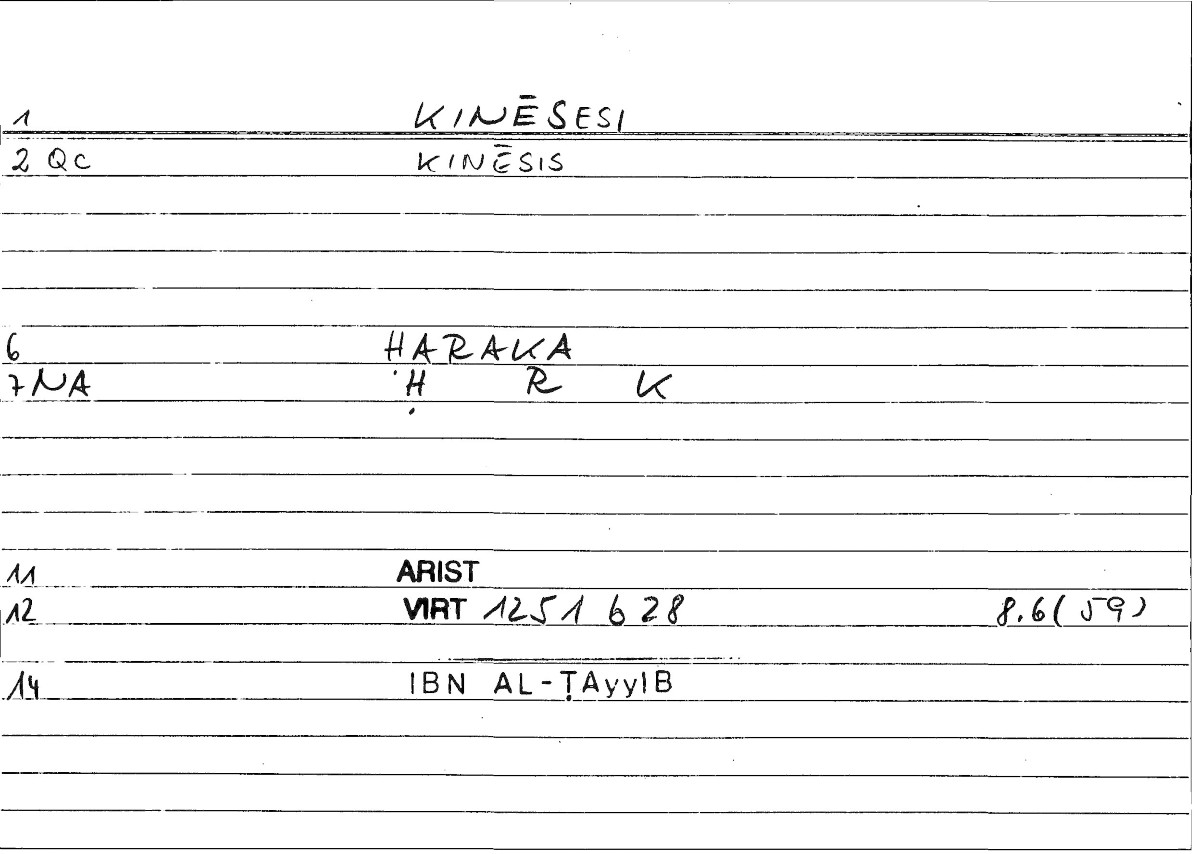 1 KINĒSESI
2 Qc KINĒSIS
6 ḤARAKA
7 NA Ḥ R K
11 ARIST
12 VIRT 1251 b 28 8.6(59)
14 IBN AL-ṬAyyIB